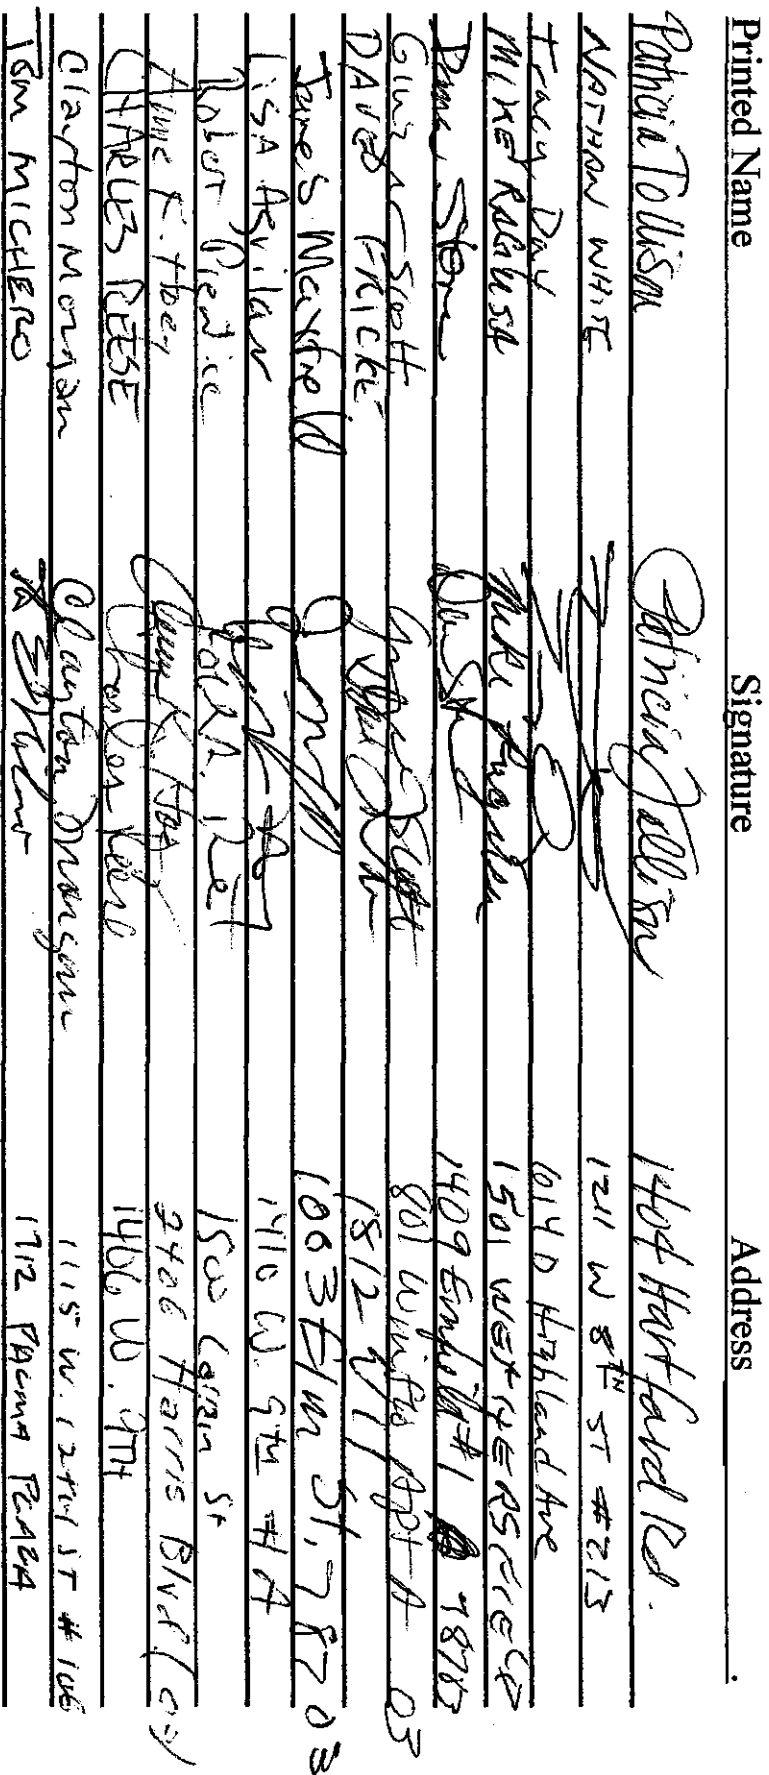 Printed Name Signature Address
Patricia Tollison Patricia Tollison 1404 Hartford Rd.
NATHAN WHITE 1211 W 8TH ST #213
Tracy Day 614 D Highland Ave
MIKE RAGUSA Mike Ragusa 1501 WETHERSFIELD
Stone 1409 #1 78703
Scott Scott 801 Apt A 03
DAVID FRICKE 1812 W 11
James Maxfield 1003 Elm St. 78703
LISA AGUILAR 1410 W. 9TH # A
Robert 1500 St
Anne K. Anne K. 2406 Harris Blvd (03)
CHARLES REESE Charles 1406 W. 9TH
Clayton Morgan Clayton Morgan 1115 W. 12TH ST # 106
TOM MICHERO 1712 PALMA PLAZA